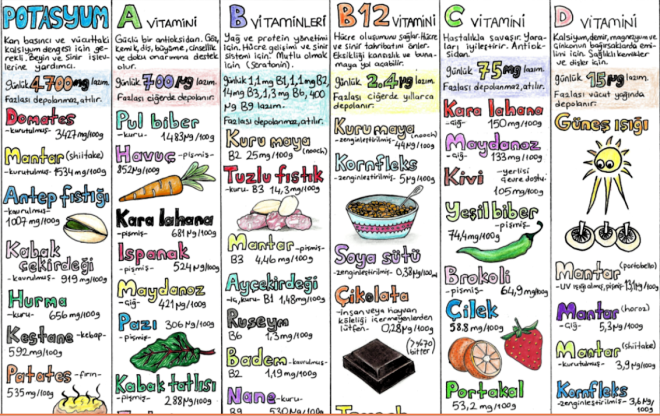 POTASYUM
Kan basıncı ve vücuttaki
kalsiyum dengesi için ge-
rekli. Beyin ve Sinir işlev-
lerine yardımcı.
günlük 4.700 mg lazım.
Fazlası depolanmaz, atılır.
Domates
-kurutulmuş- 3427 mg/100g
Mantar (shiitake)
-kurutulmuş- 1534 mg/100g
Antep fıstığı
-kavrulmuş-
1007 mg/100g
Kabak
çekirdeği
-kavrulmuş- 919 mg/100g
Hurma
-kuru- 656 mg/100g
Kestane -kebap-
592 mg/100g
Patates -fırın-
535 mg/100g
A VİTAMİNİ
Güçlü bir antioksidan. Göz,
kemik, diş, büyüme, cinsellik
ve doku onarımına destek
olur.
günlük 700 µg lazım.
Fazlası ciğerde depolanır.
Pul biber
-kuru- 1483 µg/100g
Havuç -pişmiş-
852 µg/100g
Kara lahana
-pişmiş- 681 µg/100g
Ispanak
-pişmiş- 524 µg/100g
Maydanoz
-çiğ- 421 µg/100g
Pazı 306 µg/100g
-pişmiş-
Kabak tatlısı
-pişmiş- 288 µg/100g
B VİTAMİNLERİ
Yağ ve protein yönetimi
için. Hücre gelişimi ve sinir
sistemi için. Mutlu olmak
için (Serotonin).
günlük 1,1 mg B1, 1,1 mg B2,
14 mg B3, 1,3 mg B6, 400
µg B9 lazım.
Fazlası depolanmaz, atılır.
Kuru maya
B2 25 mg/100g (nooch)
Tuzlu fıstık
-kuru- B3 14,3 mg/100g
Mantar -pişmiş-
B3 4,46 mg/100g
Ayçekirdeği
-iç, kuru- B1 1,48 mg/100g
Ruşeym
B6 1,3 mg/100g
Badem -kavrulmuş-
B2 1,19 mg/100g
Nane -kuru-
B9 530 µg/100g
B12 VİTAMİNİ
Hücre oluşumunu sağlar. Hücre
ve sinir tahribatını önler.
Eksikliği kansızlık ve buna-
maya yol açabilir.
günlük 2,4 µg lazım.
Fazlası ciğerde yıllarca
depolanır.
Kuru maya (nooch)
-zenginleştirilmiş- 44 µg/100g
Kornfleks
-zenginleştirilmiş- 5 µg/100g
Soya sütü
-zenginleştirilmiş- 0,38 µg/100g
Çikolata
-insan veya hayvan
köleliği içermeyenlerden
lütfen- 0,28 µg/100g
(%70
bitter)
C VİTAMİNİ
Hastalıkla savaşır. Yara-
ları iyileştirir. Antiok-
sidan.
günlük 75 mg lazım.
Fazlası depolanmaz, atılır.
Kara lahana
-çiğ- 150 mg/100g
Maydanoz
-çiğ- 133 mg/100g
Kivi -yerlisi
çevre dostu-
105 mg/100g
Yeşil biber
-pişmiş-
74,4 mg/100g
Brokoli
-pişmiş- 64,9 mg/100g
Çilek
58.8 mg/100g
Portakal
53,2 mg/100g
D VİTAMİNİ
Kalsiyum, demir, magnezyum ve
çinkonun bağırsaklarda emi-
limi için. Sağlıklı kemikler
ve dişler için.
günlük 15 µg lazım.
Fazlası vücut yağında
depolanır.
Güneş ışığı
Mantar (portobello)
Mantar (horoz)
-çiğ- 5,3 µg/100g
Mantar (shiitake)
-kurutulmuş- 3,9 µg/100g
Kornfleks
-zenginleştirilmiş- 3,6 µg/
100g